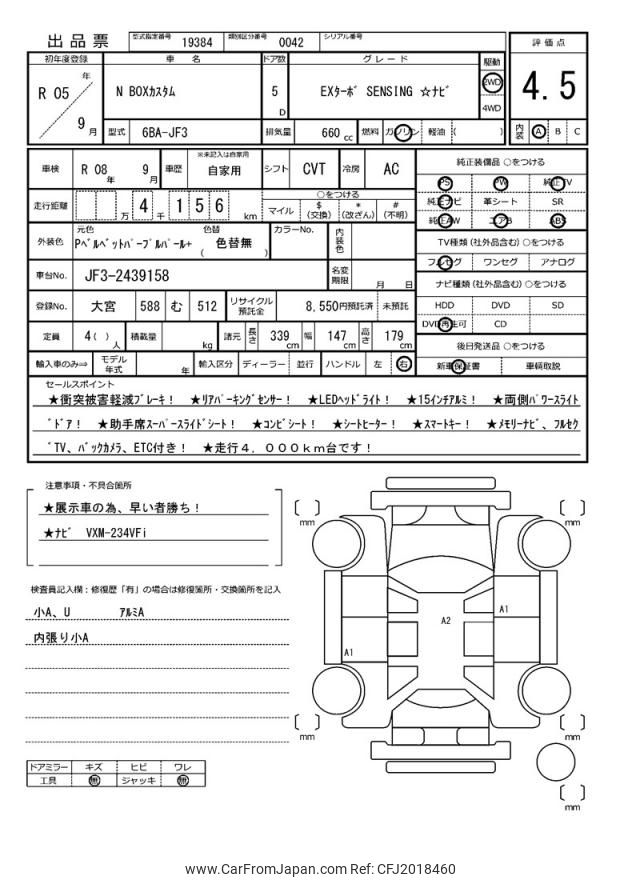 出品票
型式指定番号 19384 類別区分番号 0042 シリアル番号
初年度登録 車名 ドア数 グレード 駆動 評価点
R 05 年 9 月
N BOXカスタム 5 D EXターボ SENSING ☆ナビ 2WD 4WD 4.5
型式 6BA-JF3 排気量 660 cc 燃料 ガソリン 軽油 ( ) 内装 A B C
車検 R 08 年 9 月 車歴 ※未記入は自家用 自家用 シフト CVT 冷房 AC
走行距離 万 4 千 1 5 6 km ○をつける
マイル $ (交換) * (改ざん) # (不明)
外装色 元色 Pベルベットパープルパール+ 色替 色替無 ( ) カラーNo. 内装色
車台No. JF3-2439158 名変期限 月 日
登録No. 大宮 588 む 512 リサイクル預託金 8,550円預託済 未預託
定員 4( ) 人 積載量 kg 諸元 長さ 339 cm 幅 147 cm 高さ 179 cm
輸入車のみ⇒ モデル年式 年 輸入区分 ディーラー 並行 ハンドル 左 右
純正装備品 ○をつける
PS PW 純正TV
純正ナビ 革シート SR
純正AW エアB ABS
TV種類 (社外品含む) ○をつける
フルセグ ワンセグ アナログ
ナビ種類 (社外品含む) ○をつける
HDD DVD SD
DVD再生可 CD
後日発送品 ○をつける
新車保証書 車輌取説
セールスポイント
★衝突被害軽減ブレーキ! ★リアパーキングセンサー! ★LEDヘッドライト! ★15インチアルミ! ★両側パワースライト
゛ドア! ★助手席スーパースライドシート! ★コンビシート! ★シートヒーター! ★スマートキー! ★メモリーナビ、フルセク
゛TV、バックカメラ、ETC付き! ★走行4,000km台です!
注意事項・不具合箇所
★展示車の為、早い者勝ち!
★ナビ VXM-234VFi
検査員記入欄:修復歴「有」の場合は修復箇所・交換箇所を記入
小A、U アルミA
内張り小A
ドアミラー キズ ヒビ ワレ
工具 無 ジャッキ 無
mm
mm
A1
A2
A1
mm
mm
mm
www.CarFromJapan.com Ref: CFJ2018460